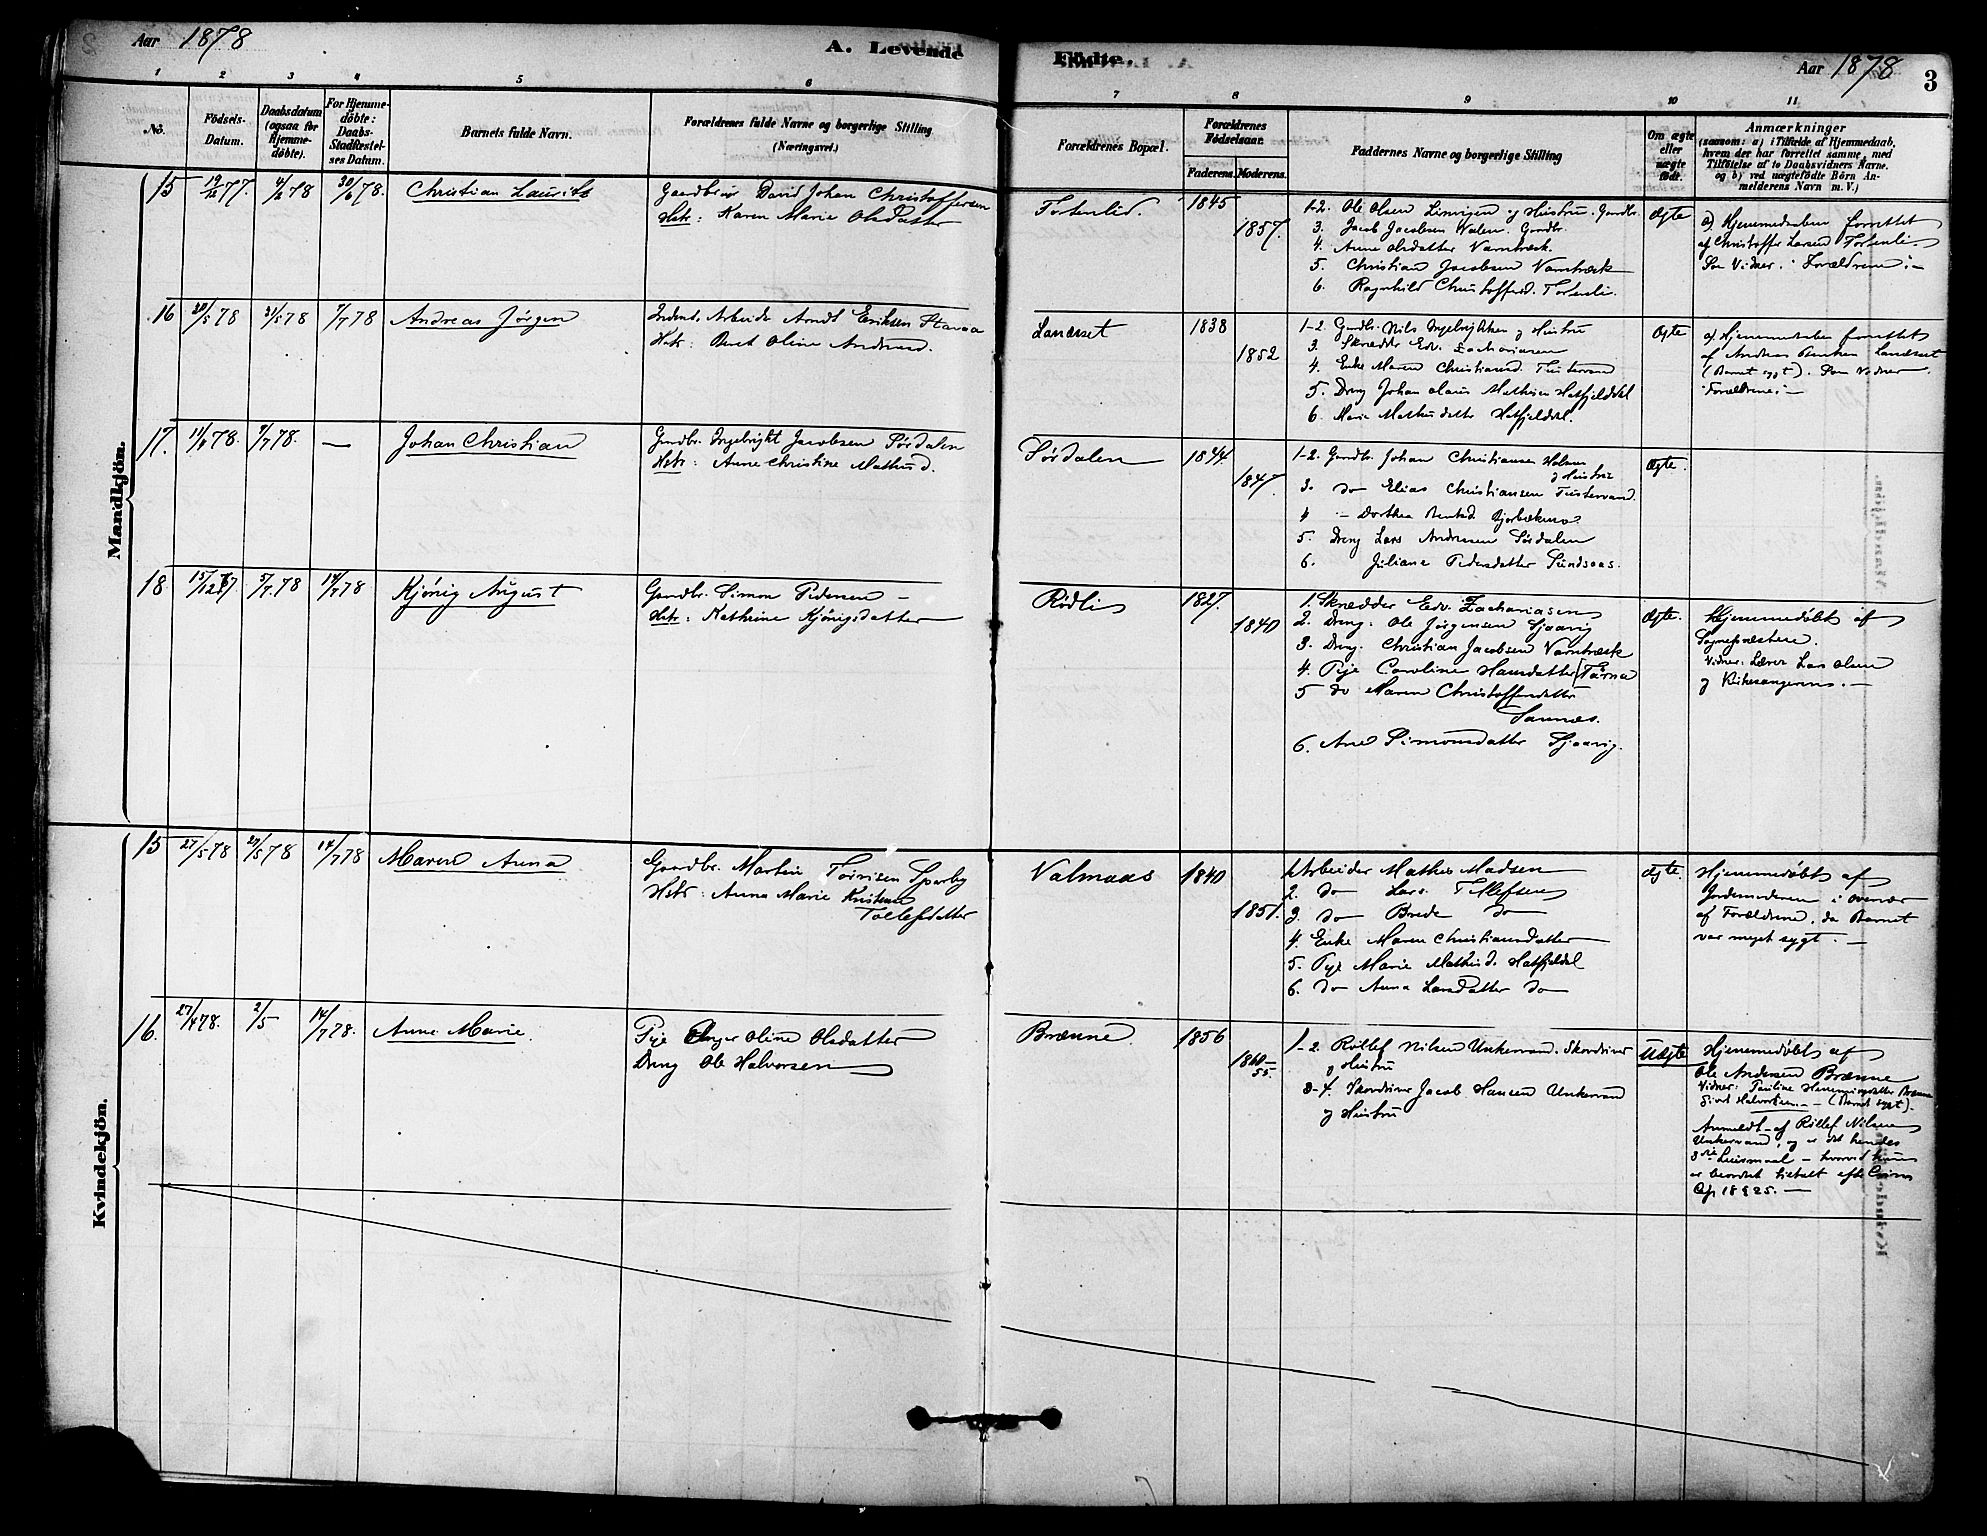 Aar 1878
A. Levende
Födte.
Aar 1878
3
1 2 3 4 5 6 7 8 9 10 11
No.
Födsels-Datum.
Daabsdatum (ogsaa for Hjemme-döbte).
For Hjemme-döbte: Daabs-Stadfæstel-ses Datum.
Barnets fulde Navn.
Forældrenes fulde Navne og borgerlige Stilling (Næringsvei.)
Forældrenes Bopæl.
Forældrenes Födselsaar.
Faderens. Moderens.
Faddernes Navne og borgerlige Stilling
Om ægte eller uægte født.
Anmærkninger
(saasom: a) i Tilfælde af Hjemmedaab,
hvem der har forrettet samme, med
Tilföielse af to Daabsvidners Navne.
og b) ved uægtefödte Börn An-
melderens Navn m. V.)
Mandkjön.
15 19/12 77. 4/2 78 30/6 78. Christian Laurits
Gaardbruger David Johan Christoffersen
Hstr: Karen Marie Olsdatter
Fortenlid. 1845 1857.
1-2. Ole Olsen og Hustru. Gardbr.
3. Jacob Jacobsen Valen. Gardbr.
4. Anne Olsdatter Varntræsk.
5. Christian Jacobsen Varntræsk
6. Ragnhild Christoffersd. Fortenli.
Ægte
a) Hjemmedaaben forrettet
af Christoffer Larsen Fortenli
Som Vidner: Forældrene:-
16 30/5 78 31/5 78 7/7 78 Andreas Jörgen
Arbeider Arndt Eriksen
Hstr: Beret Oline Andreasd.
Landset 1838 1852
1-2 Gardbr. Nils Ingebrigtsen og Hustru
3 Skrædder Edv. Zachariasen
4. Enke Maren Christiansd. Tustervand
5. Dreng Johan Olaus Mathisen Hatfjelddal
6. Marie Mathisdatter Hatfjeldal.
Ægte
a) Hjemmedaaben forrettet
af Andreas Landset
(Barnet sygt). Som Vidner
Forældrene:-
17. 11/6 78. 7/7 78. — Johan Christian
Gardbr. Ingebrigt Jacobsen Sørdalen
Hstr: Anne Christine Mathisd.
Sørdalen 1844. 1847.
1-2. Gardbr. Johan Christiansen
og Hustru
3. do Elias Christiansen Tustervand.
4 - Dorthea
5. Dreng Lars Andersen Sørdalen
6. Juliane Pedersdatter Sundsaas.
Ægte.
18 15/12 67 5/7 78 14/7 78 Kjönig August
Gardbr. Simon Pedersen -
Hstr: Kathrine Kjönigsdatter
Rødli 1827. 1840
1. Skrædder Edv. Zachariasen
2. Dreng: Ole Jørgensen Sjaavig
3. Dreng. Christian Jacobsen Varntræsk
4. Pige Caroline Hansdatter Tärna
5 do Maren Christoffersdatter
Sannæs.
6. Ane Simonsdatter Sjaavig.
Ægte.
Hjemmedöbt af
Sognepræsten.
Vidner: Lærer Lars Olsen
og Kirkesangeren. -
Kvindekjön.
15 27/5 78 29/5 78 14/7 78 Maren Anna
Gardbr. Martin Sparby
Hstr: Anna Marie Kristine
Tollefsdatter
Valmaas 1840 1851.
1 Arbeider Mathis Madsen
2. do Lars Tollefsen
3. do Brede do
4. Enke Maren Christiansdatter
5. Pige Marie Mathisd. Hatfjeldal
6. do Anna Larsdatter do
Ægte.
Hjemmedöbt af
Jordemoderen i Overvær
af Forældrene, da Barnet
var meget sygt. -
16. 27/4 78. 2/5 14/7 78. Anne Marie.
Pige Inger Oline Olsdatter
Dreng Ole Halvorsen
Brænne 1856 55.
1-2 Rollef Nilsen Unkervand. Skovdriver
og Hustru
3-4. Skovdriver Jacob Hansen Unkervand
og Hustru
Uægte
Hjemmedöbt af
Ole Andersen Brænne
Vidner: Pauline Henningsdatter Brænne
Sivert Halvorsen. - (Barnet sygt).
Anmeldt af Rollef Nilsen
Unkervand, og er det hendes
3die Leiermaal - hvorved hun
er